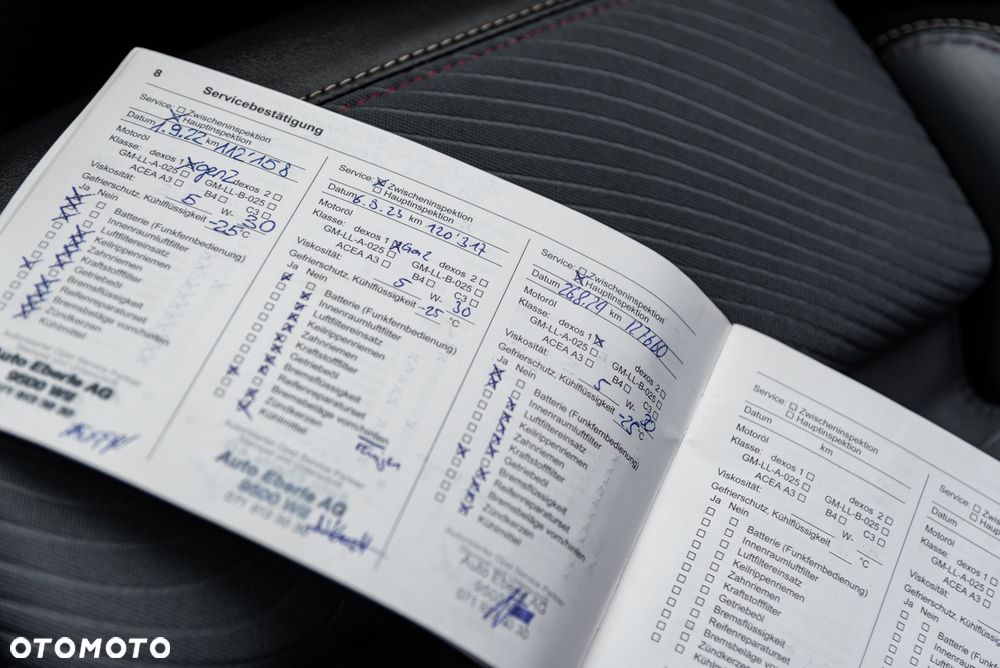 8
Servicebestätigung
Service: Zwischeninspektion
Hauptinspektion
Datum 1.9.22 km 112'158
Motoröl
Klasse: dexos 1 gen2 dexos 2
GM-LL-A-025 GM-LL-B-025
ACEA A3 B4 C3
Viskosität: 5 W- 30
Gefrierschutz, Kühlflüssigkeit -25 °C
Ja Nein
Batterie (Funkfernbedienung)
Innenraumluftfilter
Luftfiltereinsatz
Keilrippenriemen
Zahnriemen
Kraftstofffilter
Getriebeöl
Bremsflüssigkeit
Reifenreparaturset
Bremsbeläge vorn/hinten
Zündkerzen
Kühlmittel
Auto Eberle AG
9500 Wil
Service: Zwischeninspektion
Hauptinspektion
Datum 6.9.23 km 120'317
Motoröl
Klasse: dexos 1 Gen2 dexos 2
GM-LL-A-025 GM-LL-B-025
ACEA A3 B4 C3
Viskosität: 5 W- 30
Gefrierschutz, Kühlflüssigkeit -25 °C
Ja Nein
Batterie (Funkfernbedienung)
Innenraumluftfilter
Luftfiltereinsatz
Keilrippenriemen
Zahnriemen
Kraftstofffilter
Getriebeöl
Bremsflüssigkeit
Reifenreparaturset
Bremsbeläge vorn/hinten
Zündkerzen
Kühlmittel
Auto Eberle AG
9500 Wil
Service: Zwischeninspektion
Hauptinspektion
Datum 26.8.24 km 127660
Motoröl
Klasse: dexos 1 dexos 2
GM-LL-A-025 GM-LL-B-025
ACEA A3 B4 C3
Viskosität: 5 W- 30
Gefrierschutz, Kühlflüssigkeit -25 °C
Ja Nein
Batterie (Funkfernbedienung)
Innenraumluftfilter
Luftfiltereinsatz
Keilrippenriemen
Zahnriemen
Kraftstofffilter
Getriebeöl
Bremsflüssigkeit
Reifenreparaturset
Bremsbeläge vorn/hinten
Zündkerzen
Kühlmittel
Service: Zwischeninspektion
Hauptinspektion
Datum km
Motoröl
Klasse: dexos 1 dexos 2
GM-LL-A-025 GM-LL-B-025
ACEA A3 B4 C3
Viskosität: W-
Gefrierschutz, Kühlflüssigkeit °C
Ja Nein
Batterie (Funkfernbedienung)
Innenraumluftfilter
Luftfiltereinsatz
Keilrippenriemen
Zahnriemen
Kraftstofffilter
Getriebeöl
Bremsflüssigkeit
Reifenreparaturset
Bremsbeläge vorn/hinten
Zündkerzen
Service:
Datum
Motoröl
Klasse: dexos 1
GM-LL-A-025
ACEA A3
Viskosität:
Gefrierschutz, Kühlflüssigkeit
Ja Nein
OTOMOTO